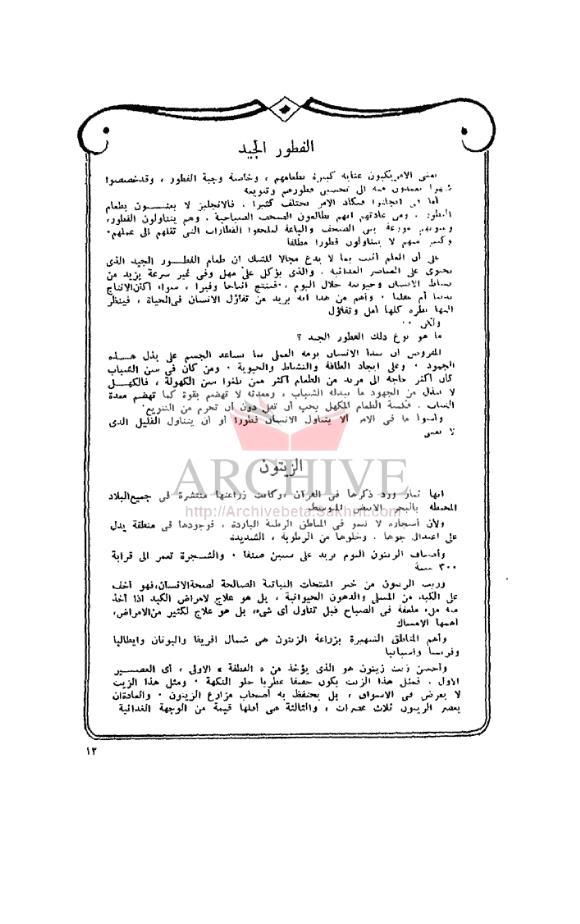 الفطور الجيد
يعنى الامريكيون عناية كبيرة بطعامهم ، وخاصة وجبة الفطور ، وقد خصصوا
شهرا يعمدون فيه الى تحسين فطورهم وتنويعه
أما في انجلترا فيكاد الامر يختلف كثيرا . فالانجليز لا يعنون بطعام
الفطور . ومن عادتهم انهم يطالعون الصحف الصباحية . وهم يتناولون الفطور،
وعيونهم موزعة بين الصحف والساعة ليلحقوا القطارات التي تقلهم الى عملهم٠
وكثير منهم لا يتناولون فطورا مطلقا
على أن العلم أثبت بما لا يدع مجالا للشك ان طعام الفطور الجيد الذى
يحتوى على العناصر الغذائية . والذى يؤكل على مهل وفى غير سرعة يزيد من
نشاط الانسان وحيويته خلال اليوم ، فينتج انتاجا وفيرا ، سواء أكان الانتاج
بدنيا أم عقليا . وأهم من هذا انه يزيد من تفاؤل الانسان فى الحياة ، فينظر
اليها نظرة كلها أمل وتفاؤل
ولكن ٠٠
ما هو نوع ذلك الفطور الجيد ؟
المفروض ان يبدأ الانسان يومه العملى بما يساعد الجسم على بذل هذه
الجهود . وعلى ايجاد الطاقة والنشاط والحيوية . ومن كان فى سن الشباب
كان أكثر حاجة الى مزيد من الطعام أكثر ممن بلغوا سن الكهولة ، فالكهل
لا يبذل من الجهود ما يبذله الشباب ، ومعدته لا تهضم بقوة كما تهضم معدة
الشباب . فكمية الطعام للكهل يجب أن تقل دون أن تحرم من التنويع
وأسوأ ما فى الامر ألا يتناول الانسان فطورا أو أن يتناول القليل الذى
لا يغنى
الزيتون
انها ثمار ورد ذكرها فى القرآن ، وكانت زراعتها منتشرة فى جميع البلاد
المحيطة بالبحر الابيض المتوسط
ولأن أشجاره لا تنمو فى المناطق الرطبة الباردة ، فوجودها فى منطقة يدل
على اعتدال جوها . وخلوها من الرطوبة ، الشديدة
وأصناف الزيتون اليوم تزيد على ستين صنفا . والشجرة تعمر الى قرابة
٣٠٠ سنة
وزيت الزيتون من خير المنتجات النباتية الصالحة لصحة الانسان، فهو أخف
على الكبد من المسلى والدهون الحيوانية ، بل هو علاج لامراض الكبد اذا أخذ
منه ملء ملعقة فى الصباح قبل تناول أى شىء، بل هو علاج لكثير من الامراض،
أهمها الامساك
وأهم المناطق الشهيرة بزراعة الزيتون هى شمال افريقا واليونان وايطاليا
وفرنسا واسبانيا
وأحسن زيت زيتون هو الذى يؤخذ من « القطفة » الاولى ، أى العصير
الاول . فمثل هذا الزيت يكون خفيفا عطريا حلو النكهة . ومثل هذا الزيت
لا يعرض فى الاسواق ، بل يحتفظ به أصحاب مزارع الزيتون . والعادة أن
يعصر الزيتون ثلاث عصرات ، والثالثة هى أقلها قيمة من الوجهة الغذائية
١٢
ARCHIVE
http://Archivebeta.Sakhrit.com